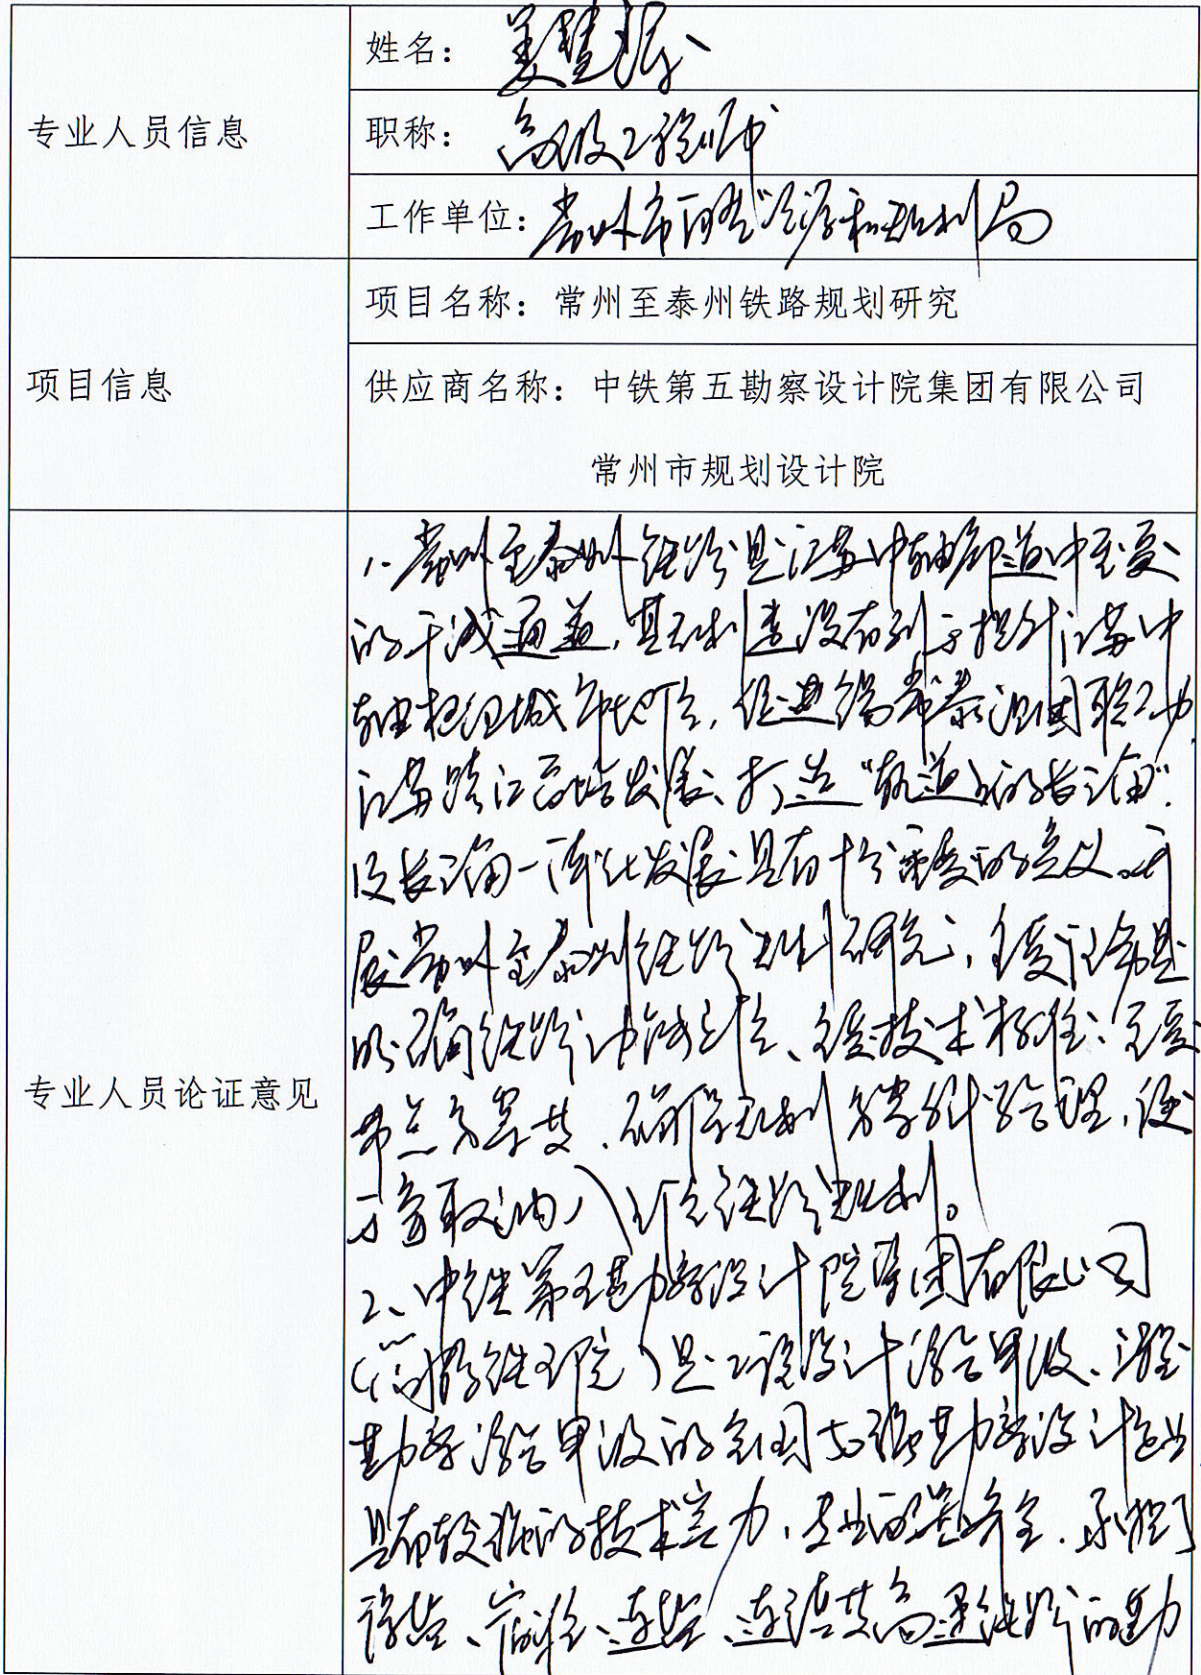 姓名：
专业人员信息
职称：高级工程师
工作单位：常州市自然资源和规划局
项目名称：常州至泰州铁路规划研究
项目信息
供应商名称：中铁第五勘察设计院集团有限公司
常州市规划设计院
专业人员论证意见
1、常州至泰州铁路是江苏中轴通道中重要
的干线通道，其规划建设有利于提升江苏中
轴枢纽城市地位，促进锡常泰组团联动、
江苏跨江融合发展、打造"轨道上的长三角"
及长三角一体化发展具有十分重要的意义。开
展常州至泰州铁路规划研究，主要任务是
明确铁路功能定位、主要技术标准、主要
节点方案等，确保规划方案科学合理，便
于争取纳入上位铁路规划。
2、中铁第五勘察设计院集团有限公司
（简称铁五院）是工程设计综合甲级、工程
勘察综合甲级的全国百强勘察设计企业
具有较强的技术实力，专业配置齐全，承担了
徐盐、宿淮、连盐、连徐等高速铁路的勘